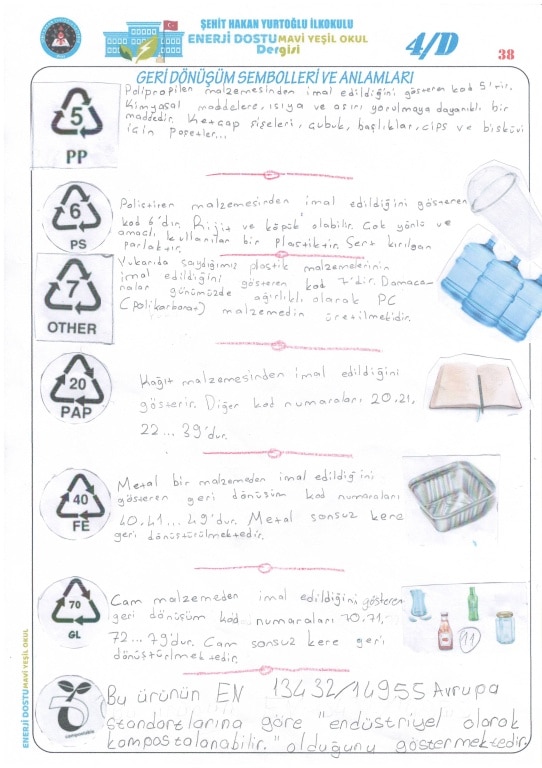 ŞEHİT HAKAN YURTOĞLU İLKOKULU
ENERJİ DOSTU MAVİ YEŞİL OKUL
Dergisi
4/D
38
GERİ DÖNÜŞÜM SEMBOLLERİ VE ANLAMLARI
5
PP
Polipropilen malzemesinden imal edildiğini gösteren kod 5'tir.
Kimyasal maddelere, ısıya ve aşırı yorulmaya dayanıklı bir
maddedir. Ketçap şişeleri, çubuk, başlıklar, cips ve bisküvi
için poşetler...
6
PS
Polistiren malzemesinden imal edildiğini gösteren
kod 6'dır. Rijit ve köpük olabilir. Çok yönlü ve
amaçlı kullanılan bir plastiktir. Sert kırılgan
parlaktır.
7
OTHER
Yukarıda saydığımız plastik malzemelerinin
imal edildiğini gösteren kod 7'dir. Damaca-
nalar günümüzde ağırlıklı olarak PC
(polikarbonat) malzemedin üretilmektedir.
20
PAP
Kağıt malzemesinden imal edildiğini
gösterir. Diğer kod numaraları 20,21,
22 ... 39'dur.
40
FE
Metal bir malzemeden imal edildiğini
gösteren geri dönüşüm kod numaraları
40,41 ... 49'dur. Metal sonsuz kere
geri dönüştürülmektedir.
70
GL
Cam malzemeden imal edildiğini gösteren
geri dönüşüm kod numaraları 70,71,
72 ... 79'dur. Cam sonsuz kere geri
dönüştürülmektedir.
11
compostable
Bu ürünün EN 13432/14955 Avrupa
standartlarına göre "endüstriyel olarak
kompostalanabilir." olduğunu göstermektedir.
ENERJİ DOSTU MAVİ YEŞİL OKUL